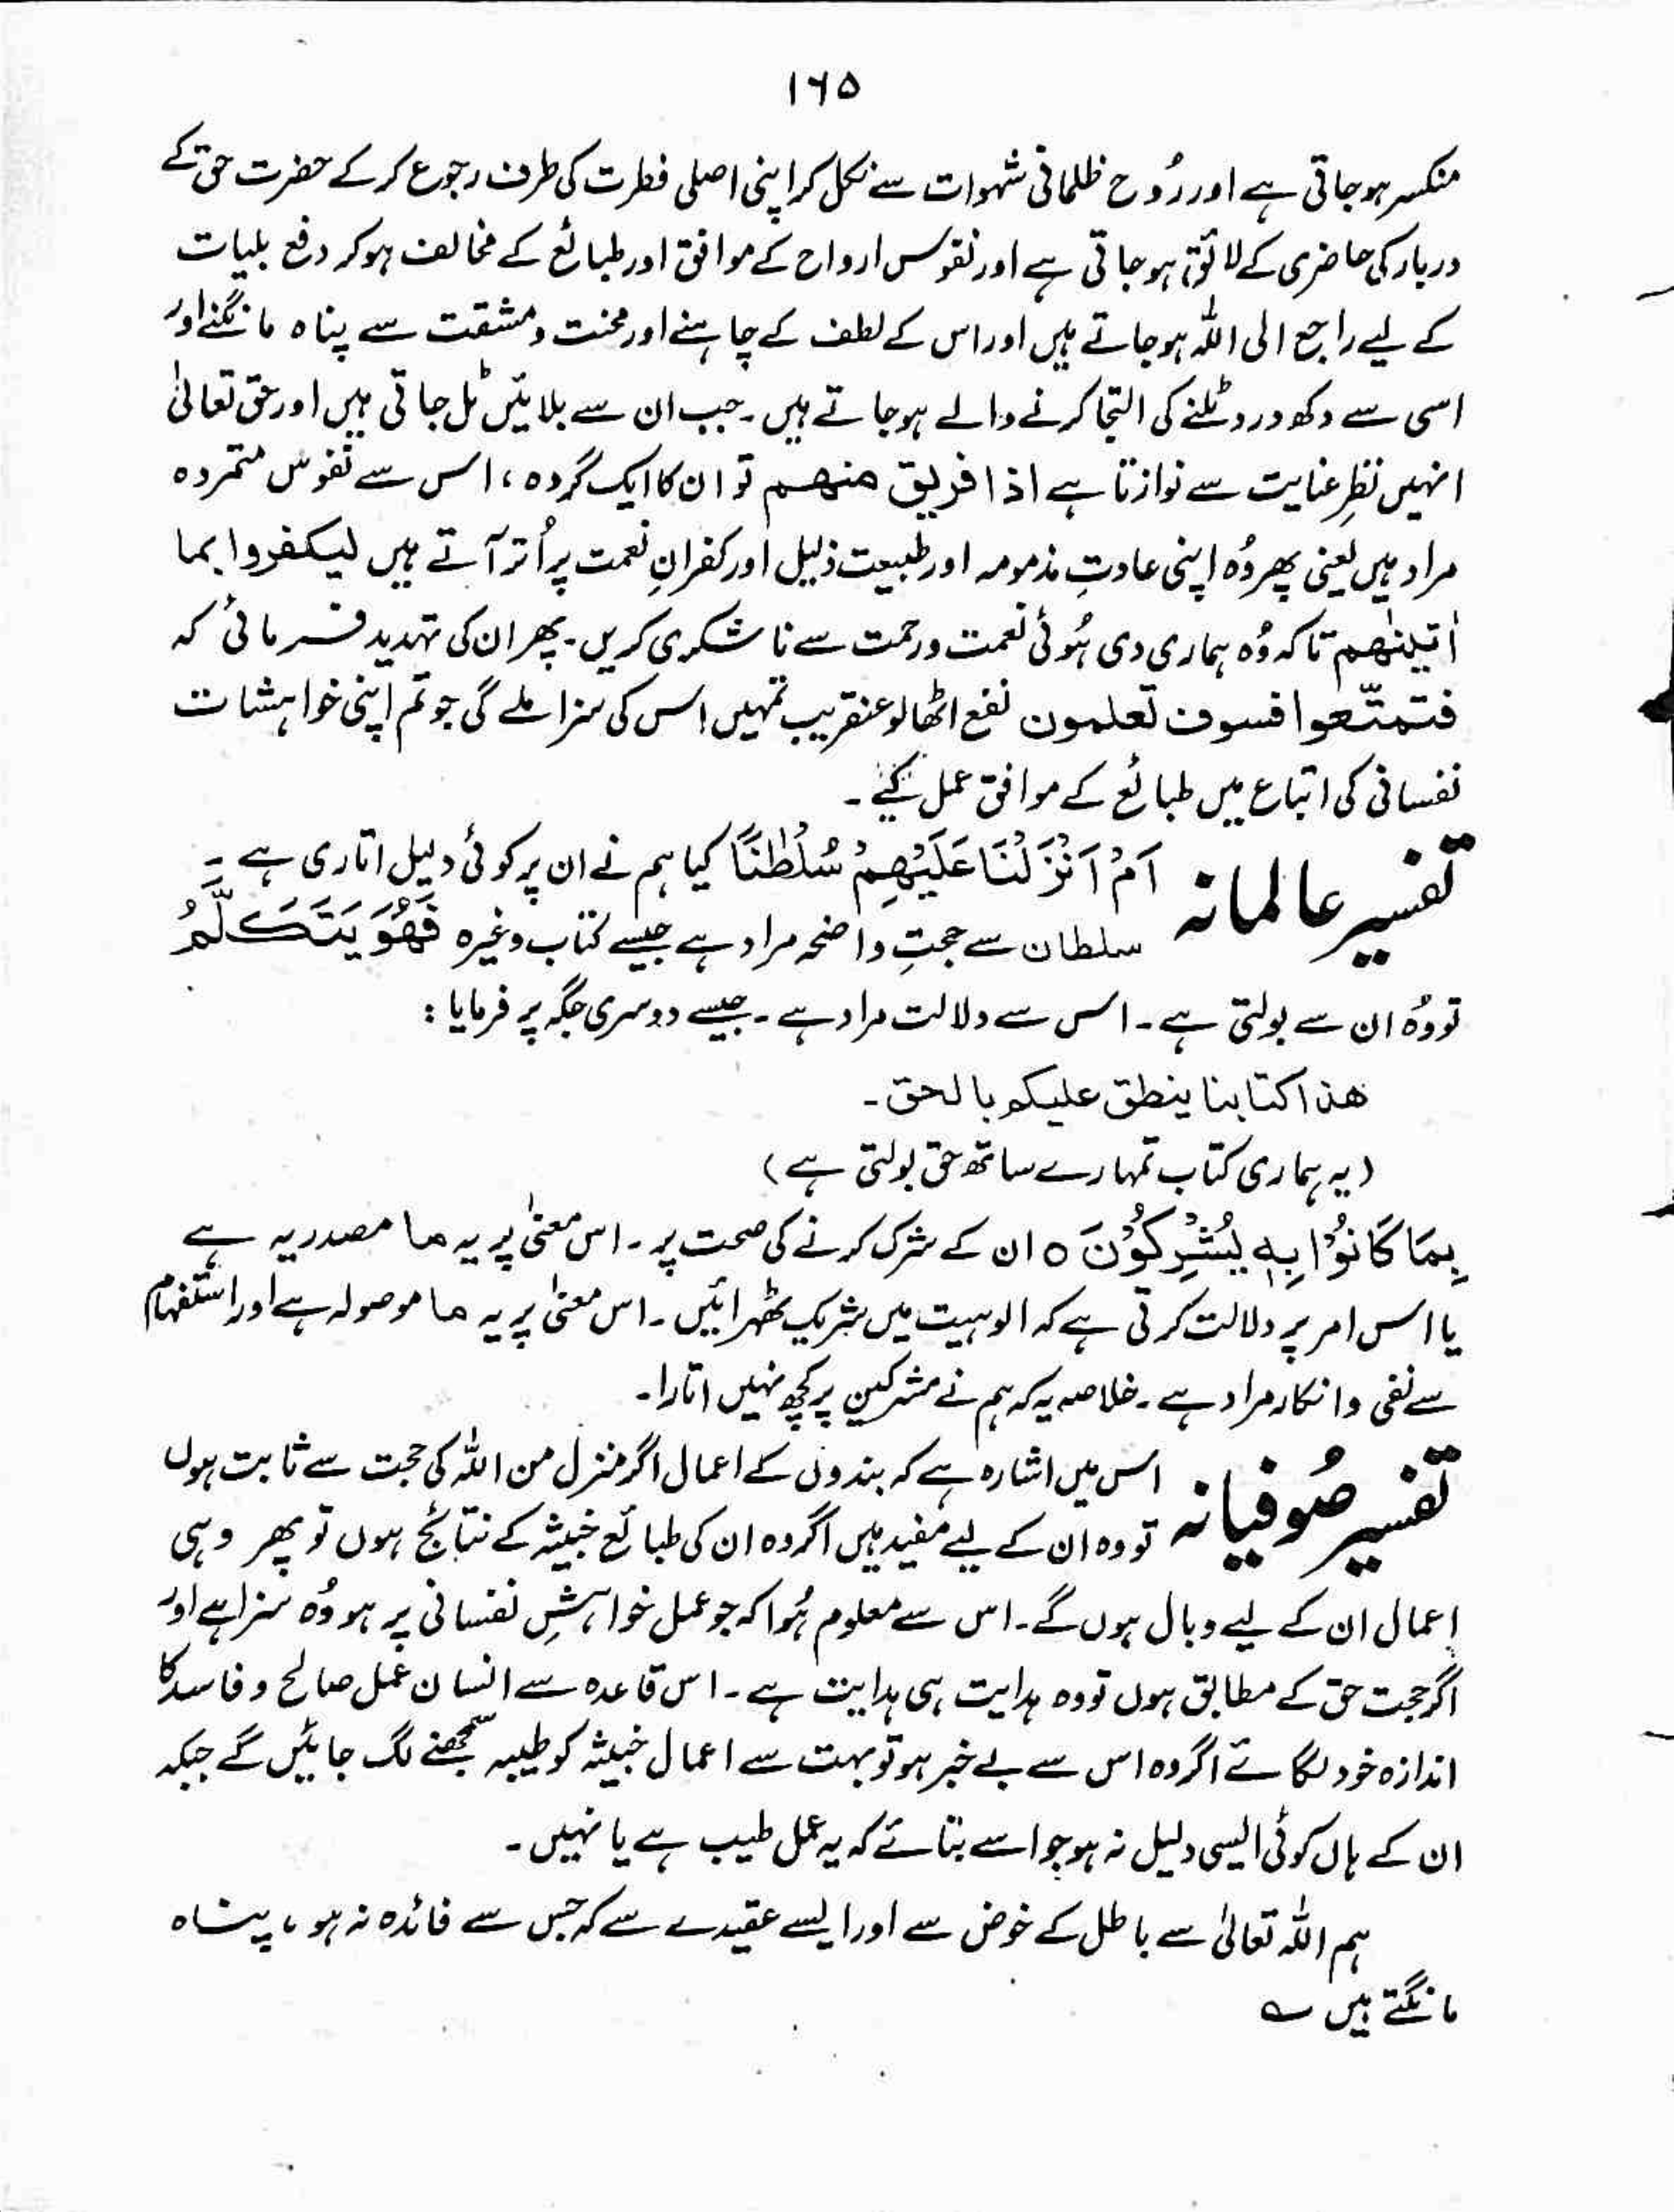 ۱۶۵
منکسر ہوجاتی ہے اور رُوح ظلمانی شہوات سے نکل کر اپنی اصلی فطرت کی طرف رجوع کر کے حضرت حق کے
دربار کی حاضری کے لائق ہوجاتی ہے اور نفوس ارواح کے موافق اور طبائع کے مخالف ہوکر دفع بلیات
کے لیے راجع الی اللہ ہوجاتے ہیں اور اس کے لطف کے چاہنے اور محنت و مشقت سے پناہ مانگنے اور
اسی سے دکھ درد ٹلنے کی التجا کرنے والے ہوجاتے ہیں۔ جب ان سے بلائیں ٹل جاتی ہیں اور حق تعالیٰ
انہیں نظرِ عنایت سے نوازتا ہے اذا فریق منھم تو ان کا ایک گروہ ، اس سے نفوس متمردہ
مراد ہیں یعنی پھر وُہ اپنی عادتِ مذمومہ اور طبیعت ذلیل اور کفرانِ نعمت پر اُتر آتے ہیں لیکفروا بما
اٰتینٰھم تاکہ وُہ ہماری دی ہُوئی نعمت و رحمت سے ناشکری کریں۔ پھر ان کی تہدید فرمائی کہ
فتمتّعوا فسوف تعلمون نفع اٹھالو عنقریب تمہیں اس کی سزا ملے گی جو تم اپنی خواہشات
نفسانی کی اتباع میں طبائع کے موافق عمل کیے۔
تفسیر عالمانہ اَمْ اَنْزَلْنَا عَلَیْهِمْ سُلْطٰنًا کیا ہم نے ان پر کوئی دلیل اتاری ہے۔
سلطان سے حجتِ واضحہ مراد ہے جیسے کتاب وغیرہ فَهُوَ یَتَكَلَّمُ
تو وُہ ان سے بولتی ہے۔ اس سے دلالت مراد ہے۔ جیسے دوسری جگہ پر فرمایا :
ھذا کتابنا ینطق علیکم بالحق۔
(یہ ہماری کتاب تمہارے ساتھ حق بولتی ہے)
بِمَا كَانُوْا بِهٖ یُشْرِكُوْنَ ○ ان کے شرک کرنے کی صحت پر۔ اس معنیٰ پر یہ ما مصدریہ ہے
یا اس امر پر دلالت کرتی ہے کہ الوہیت میں شریک ٹھہرائیں۔ اس معنیٰ پر یہ ما موصولہ ہے اور استفہام
سے نفی و انکار مراد ہے۔ خلاصہ یہ کہ ہم نے مشرکین پر کچھ نہیں اتارا۔
تفسیر صُوفیانہ اس میں اشارہ ہے کہ بندوں کے اعمال اگر منزل من اللہ کی حجت سے ثابت ہوں
تو وہ ان کے لیے مفید ہیں اگر وہ ان کی طبائع خبیثہ کے نتائج ہوں تو پھر وہی
اعمال ان کے لیے وبال ہوں گے۔ اس سے معلوم ہُوا کہ جو عمل خواہشِ نفسانی پر ہو وُہ سزا ہے اور
اگر حجت حق کے مطابق ہوں تو وہ ہدایت ہی ہدایت ہے۔ اس قاعدہ سے انسان عمل صالح و فاسد کا
اندازہ خود لگائے اگر وہ اس سے بے خبر ہو تو بہت سے اعمال خبیثہ کو طیبہ سمجھنے لگ جائیں گے جبکہ
ان کے ہاں کوئی ایسی دلیل نہ ہو جو اسے بتائے کہ یہ عمل طیب ہے یا نہیں۔
ہم اللہ تعالیٰ سے باطل کے خوض سے اور ایسے عقیدے سے کہ جس سے فائدہ نہ ہو ، پناہ
مانگتے ہیں ؎